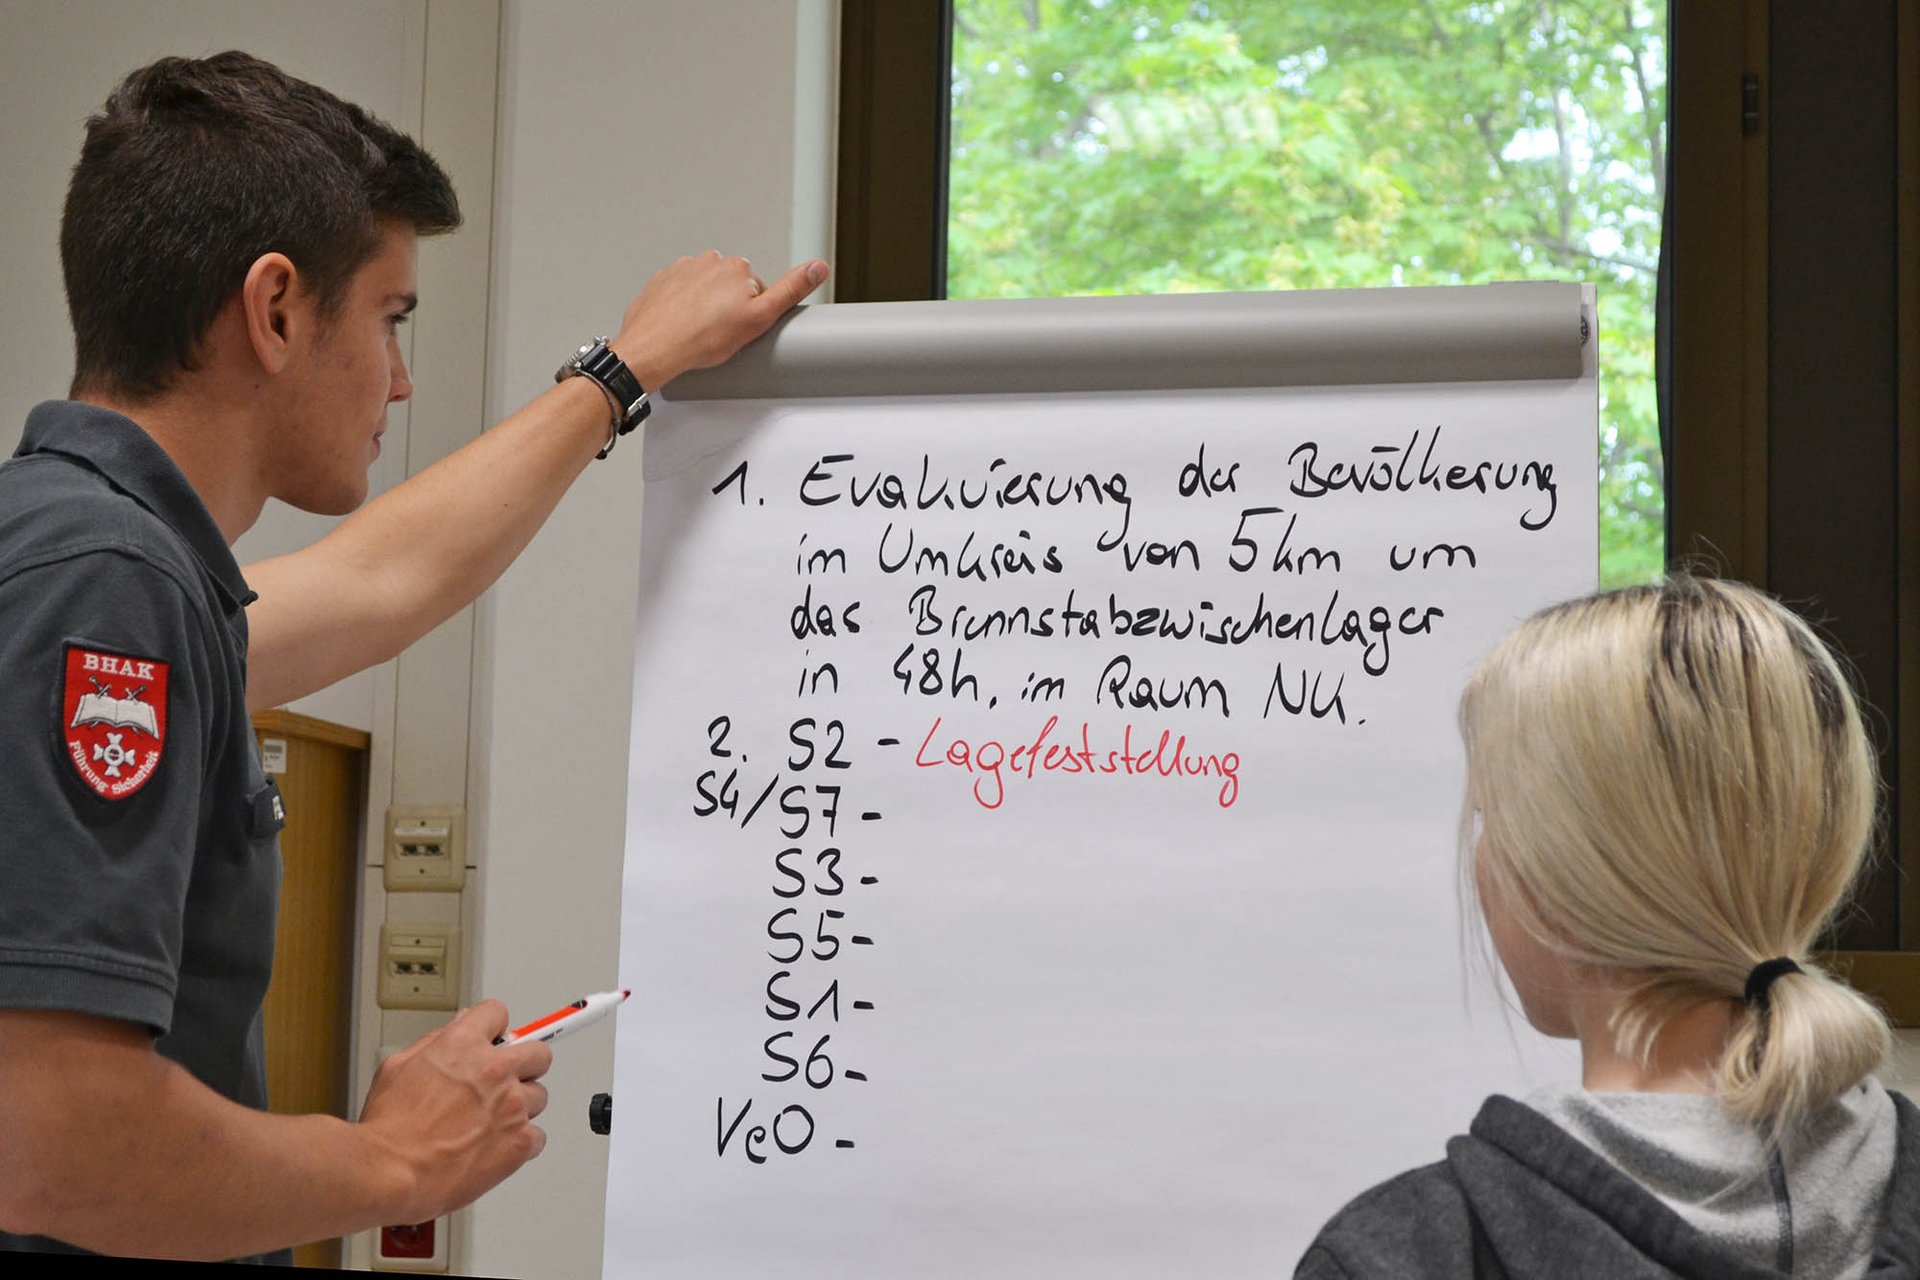 BHAK
Führung Sicherheit
1. Evakuierung der Bevölkerung
im Umkreis von 5km um
das Brennstabzwischenlager
in 48h, im Raum NK.
2. S2 - Lagefeststellung
S4/S7 -
S3 -
S5 -
S1 -
S6 -
VeO -